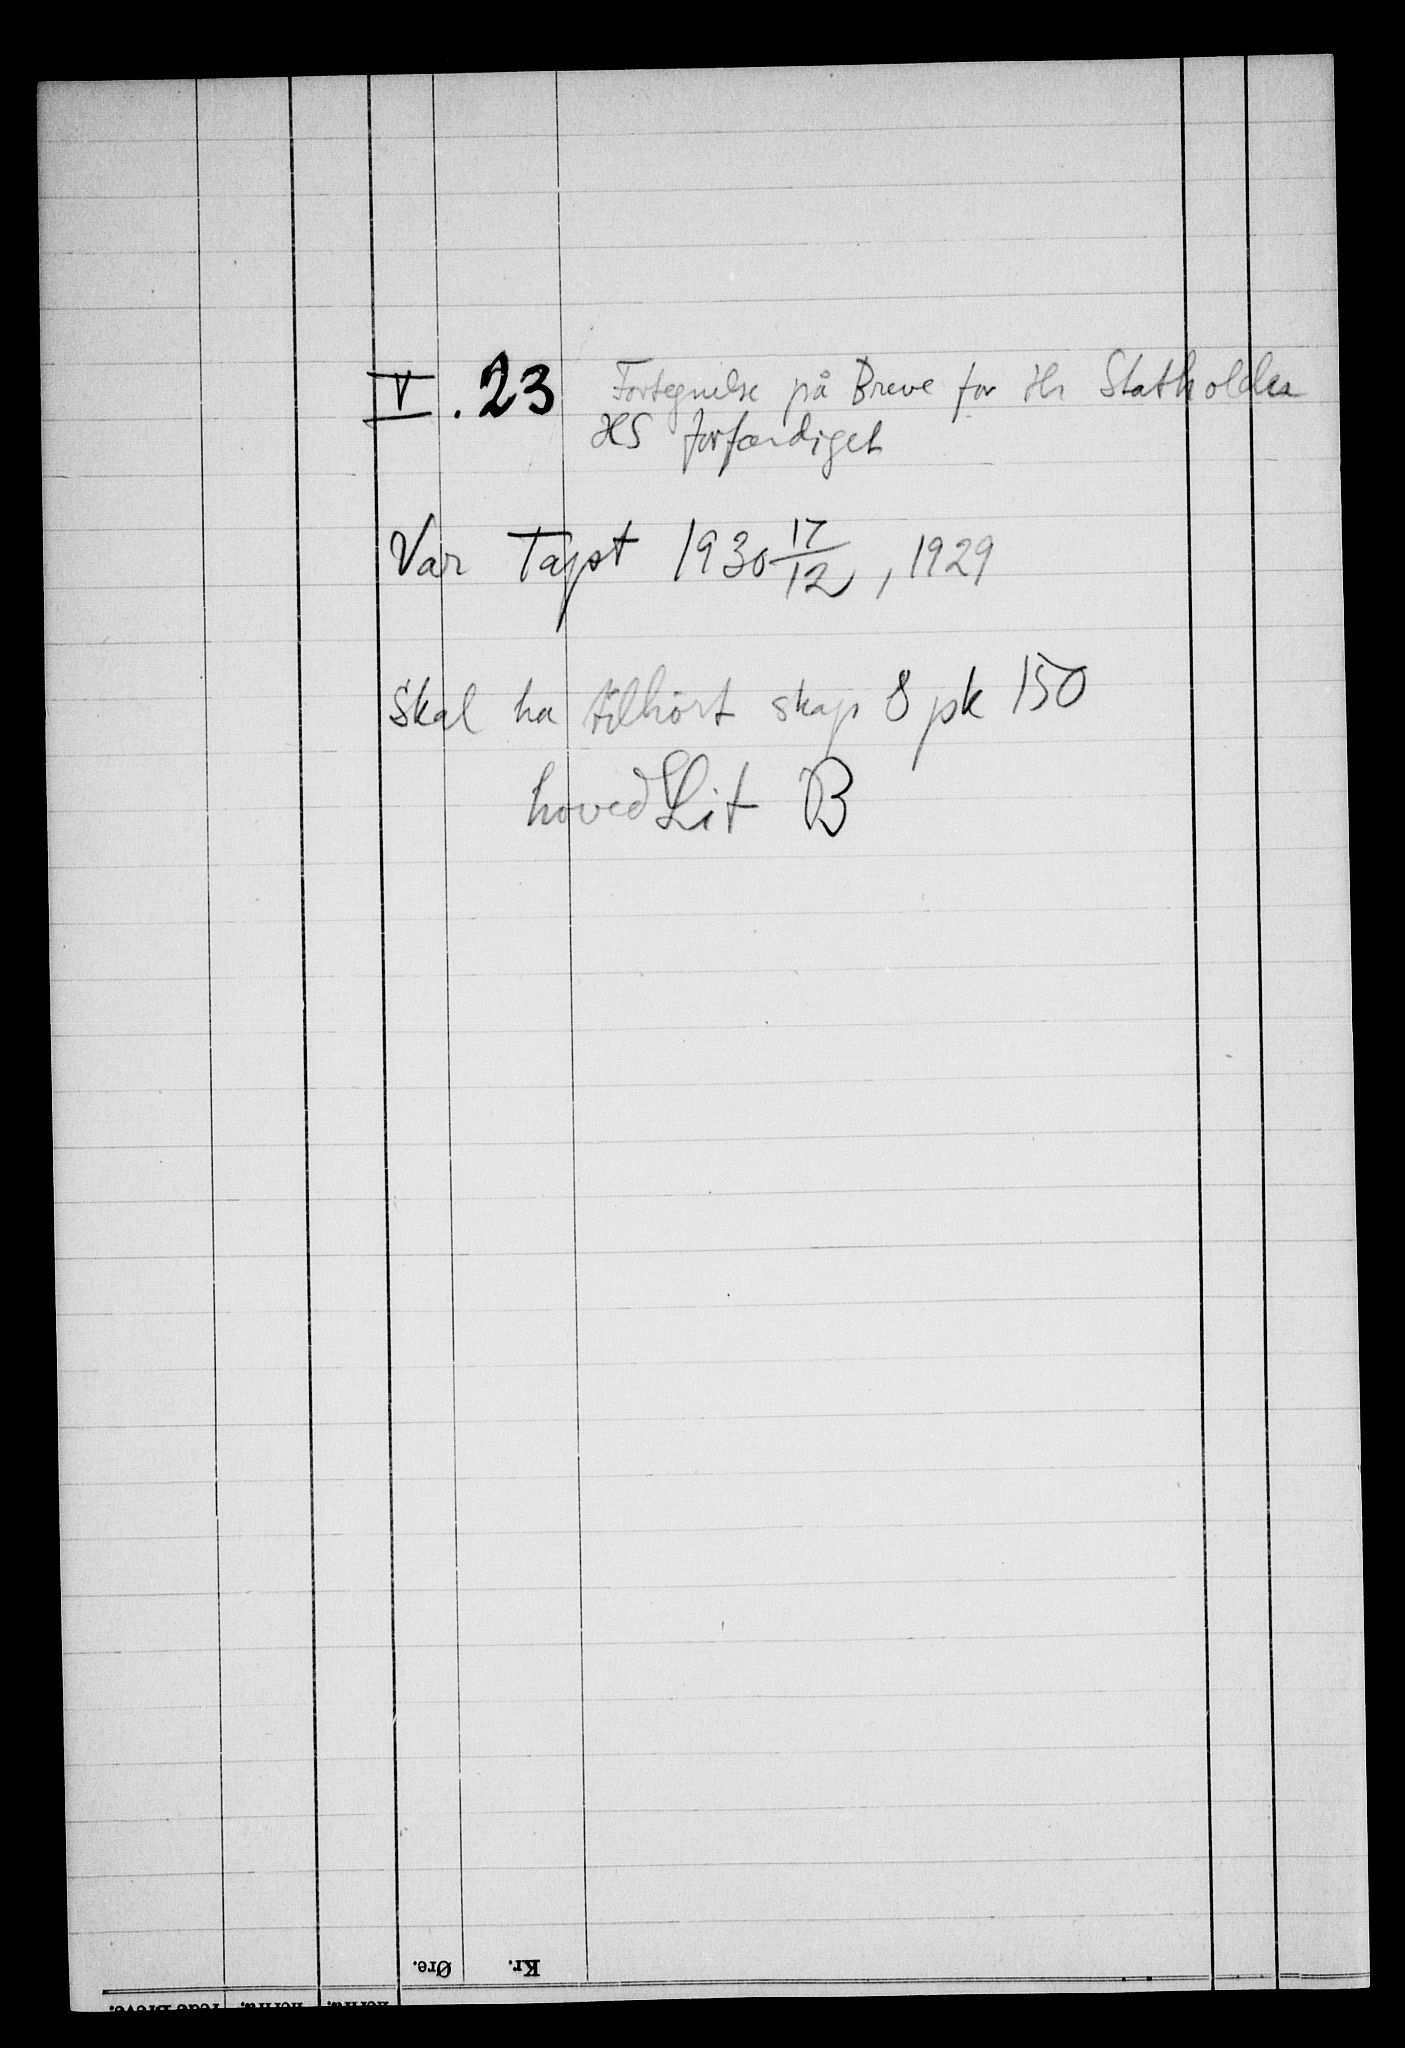 V. 23 Fortegnelse på Breve for Hr Statholder
HS forfærdiget
Var Tapt 1930 17/12, 1929
Skal ha tilhört skap 8 pk 150
hoved Lit B
Øre. Kr.